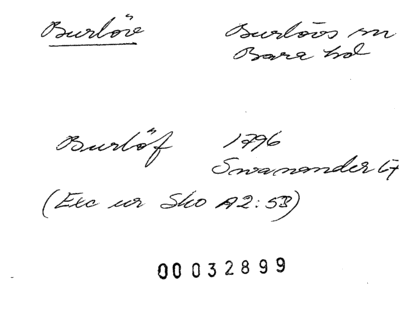 Burlöv Burlövs sn
Bara hd
Burlöf 1796
Swanander 67
(Exc ur Sko A2:53)
00032899